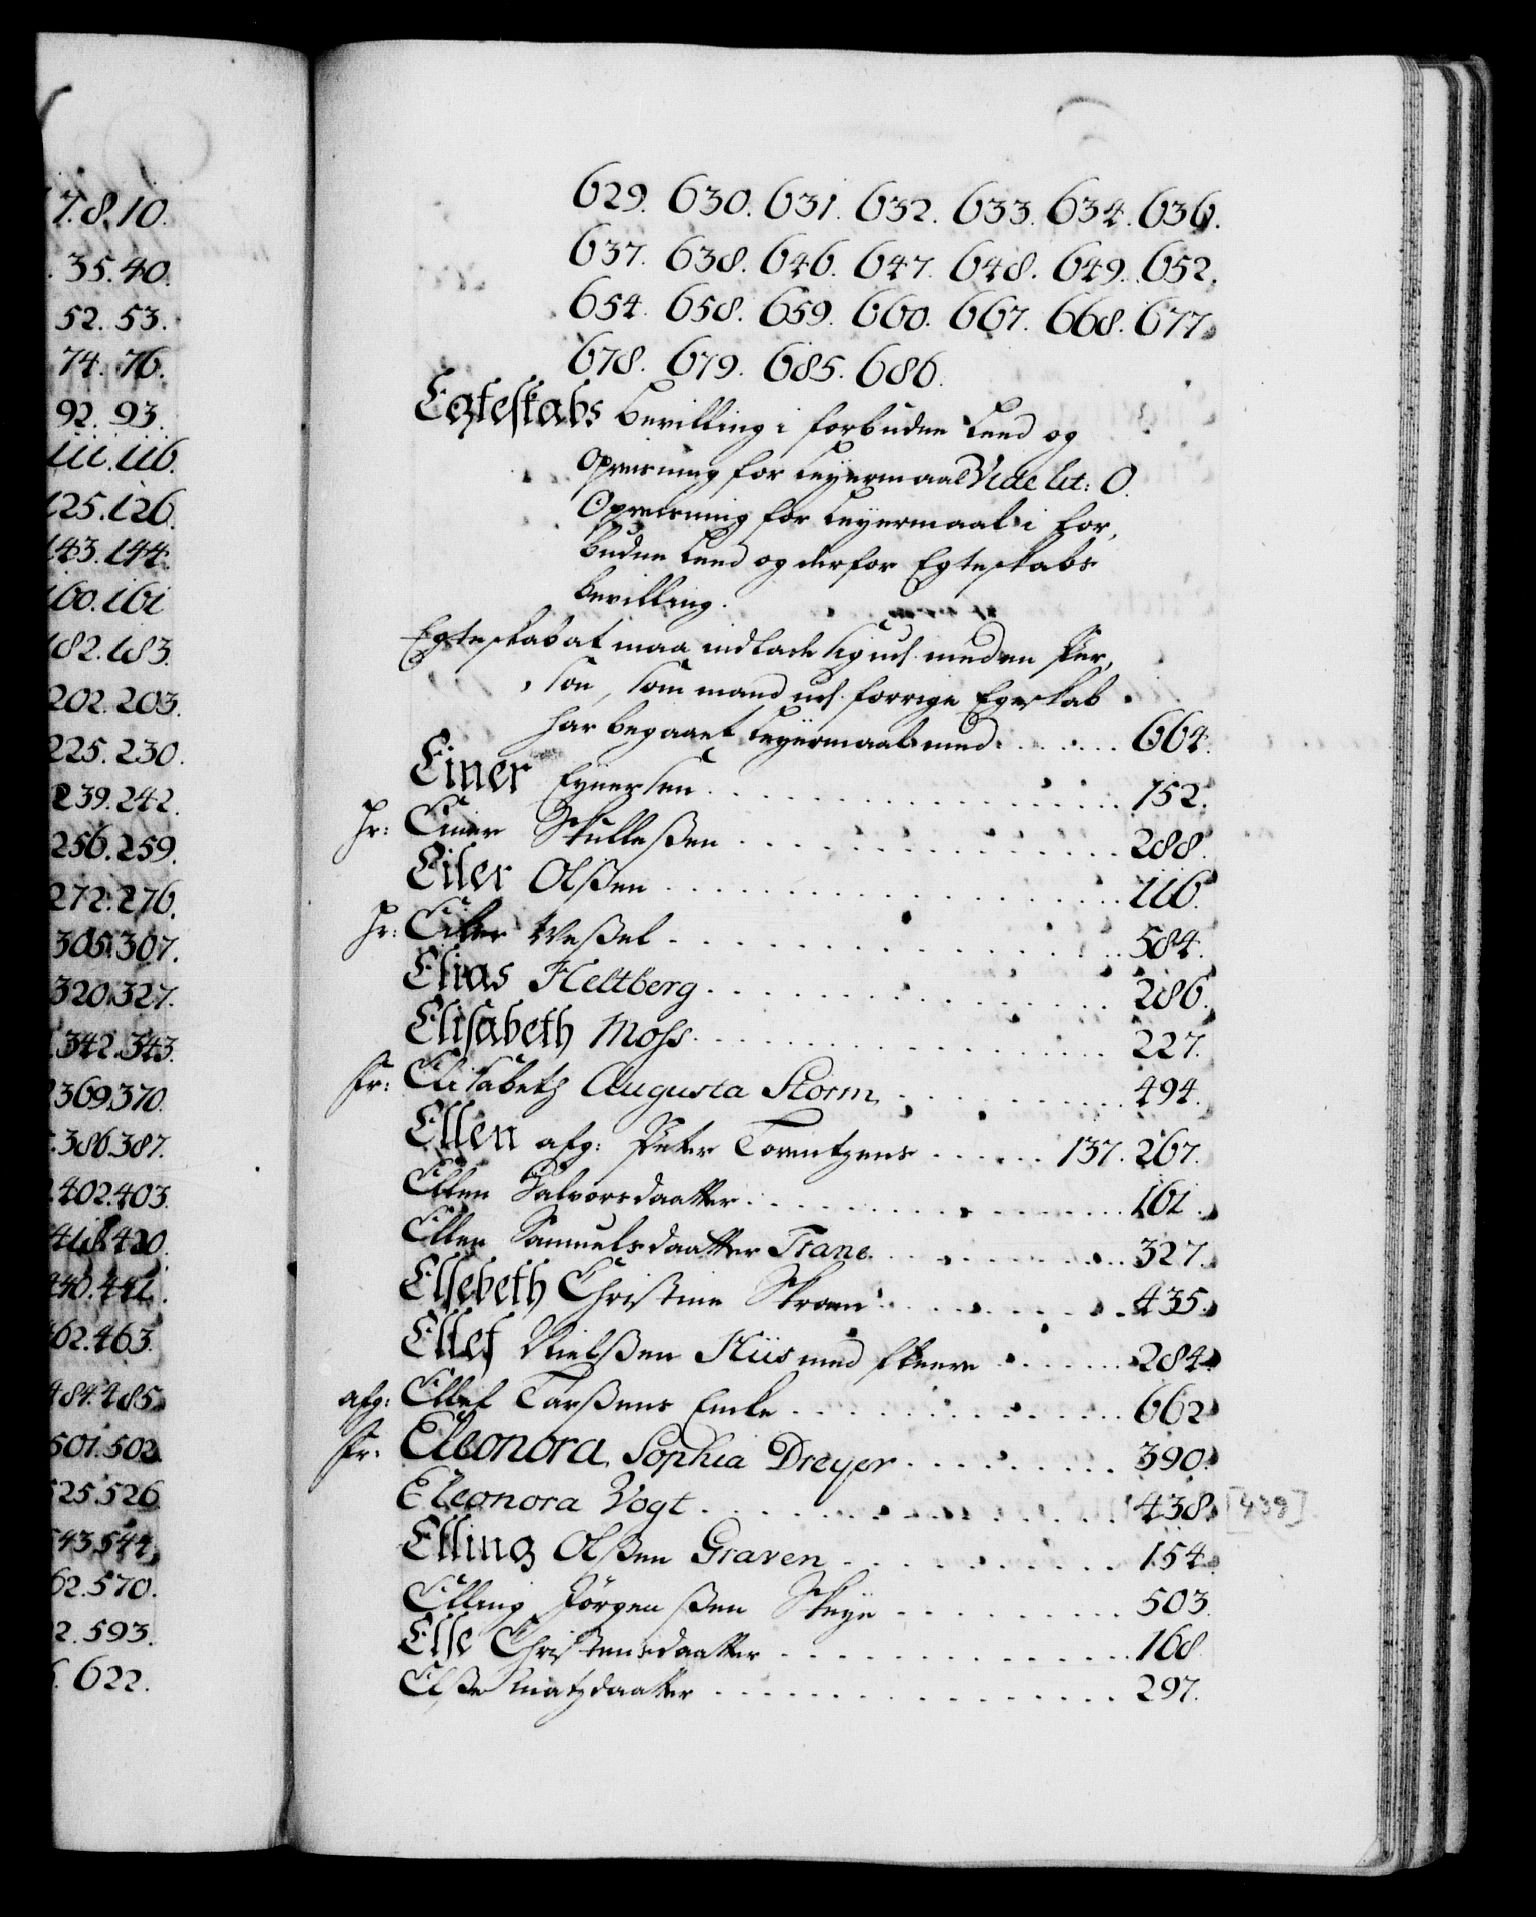 7.8.10.
35.40.
52.53.
74.76.
92.93.
111.116.
125.126.
143.144.
160.161
182.183.
202.203.
225.230.
239.242.
256.259.
272.276.
305.307.
320.327.
342.343.
369.370.
386.387.
402.403.
418.420.
440.442.
462.463.
484.485.
501.502.
525.526.
543.544.
62.570.
2.593.
622.
629. 630. 631. 632. 633. 634. 636.
637. 638. 646. 647. 648. 649. 652.
654. 658. 659. 660. 667. 668. 677.
678. 679. 685. 686.
Egteskabs bevilling i forbuden Leed og
Opreisning for Leyermaal Vide lit: O.
Opreisning for Leyermaal i for,
buden Leed og derfor Egteskabs
bevilling.
Egteskab at maa indlade sig ud. med en Per,
son, som mand ud. forrige Egeskab
har begaaet Leyermaal med. . . . . . . 664.
Einer Eynersen . . . . . . . . . . 152.
Hr: Einer Skulleßen . . . . . . . . . . 288.
Eiler Olßen . . . . . . . . . . 116.
Hr: Eiler Weßel . . . . . . . . . . 584.
Elias Heltberg . . . . . . . . . . 286.
Elisabeth Moss . . . . . . . . . . 227.
Fr: Elisabeth Augusta Storm . . . . . . . . . . 494.
Ellen afg: Peter Lorentzens . . . . . . 137. 267.
Ellen Halvorsdaatter . . . . . . . . . . 161.
Ellen Samuelsdaatter Trane . . . . . . . . . . 327.
Elsebeth Christine Stroem . . . . . . . . . . 435.
Ellef Nielßen Hiis med fleere . . . . . . 284.
afg: Ellef Larßens Enke . . . . . . . . . . 662
Fr: Eleonora Sophia Dreyer . . . . . . . . . 390.
Eleonora Vogt . . . . . . . . . . 438. [439]
Elling Olßen Graven . . . . . . . . . . 154.
Elling Jörgenßen Skeye . . . . . . . . . . 503.
Else Christensdaatter . . . . . . . . . . 168
Elße Matzdaatter . . . . . . . . . . 297.